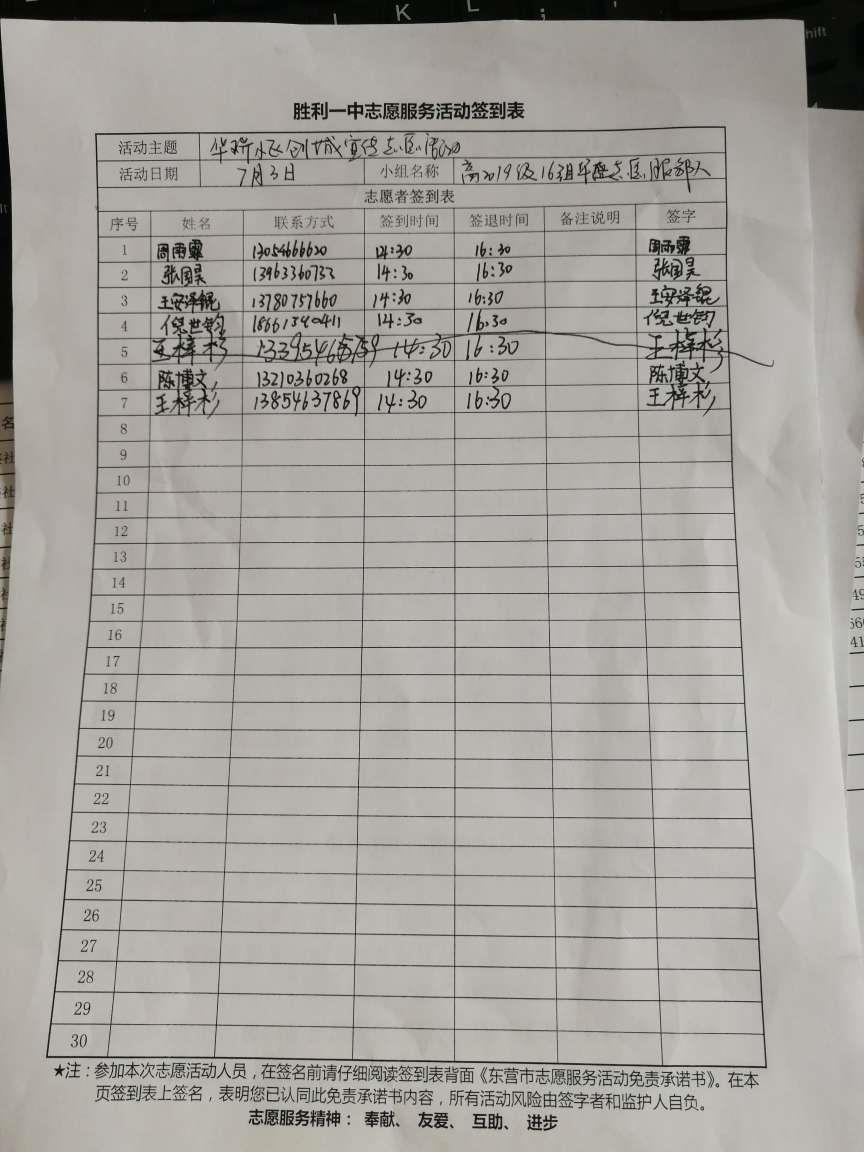 胜利一中志愿服务活动签到表
活动主题 创城宣传志愿活动
活动日期 7月3日 小组名称 高2019级16组
志愿者签到表
序号 姓名 联系方式 签到时间 签退时间 备注说明 签字
1 周雨霏 13054666620 14:30 16:30 周雨霏
2 张国昊 13963360733 14:30 16:30 张国昊
3 王安泽锟 13780757660 14:30 16:30 王安泽锟
4 倪世钧 14:30 16:30 倪世钧
5 王梓杉 14:30 16:30 王梓杉
6 陈博文 13210360268 14:30 16:30 陈博文
7 王梓杉 13854637869 14:30 16:30 王梓杉
8
9
10
11
12
13
14
15
16
17
18
19
20
21
22
23
24
25
26
27
28
29
30
★注：参加本次志愿活动人员，在签名前请仔细阅读签到表背面《东营市志愿服务活动免责承诺书》。在本
页签到表上签名，表明您已认同此免责承诺书内容，所有活动风险由签字者和监护人自负。
志愿服务精神： 奉献、 友爱、 互助、 进步